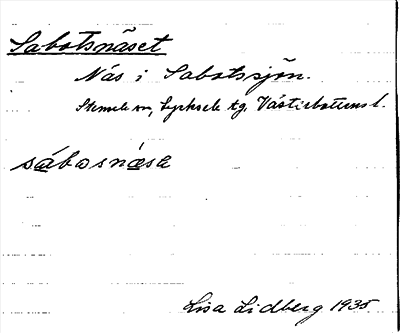 Sabotsnäset
Näs i Sabotssjön.
Stensele sn, Lycksele tg. Västerbottens l.
sábosnäsε
Lisa Lidberg 1935